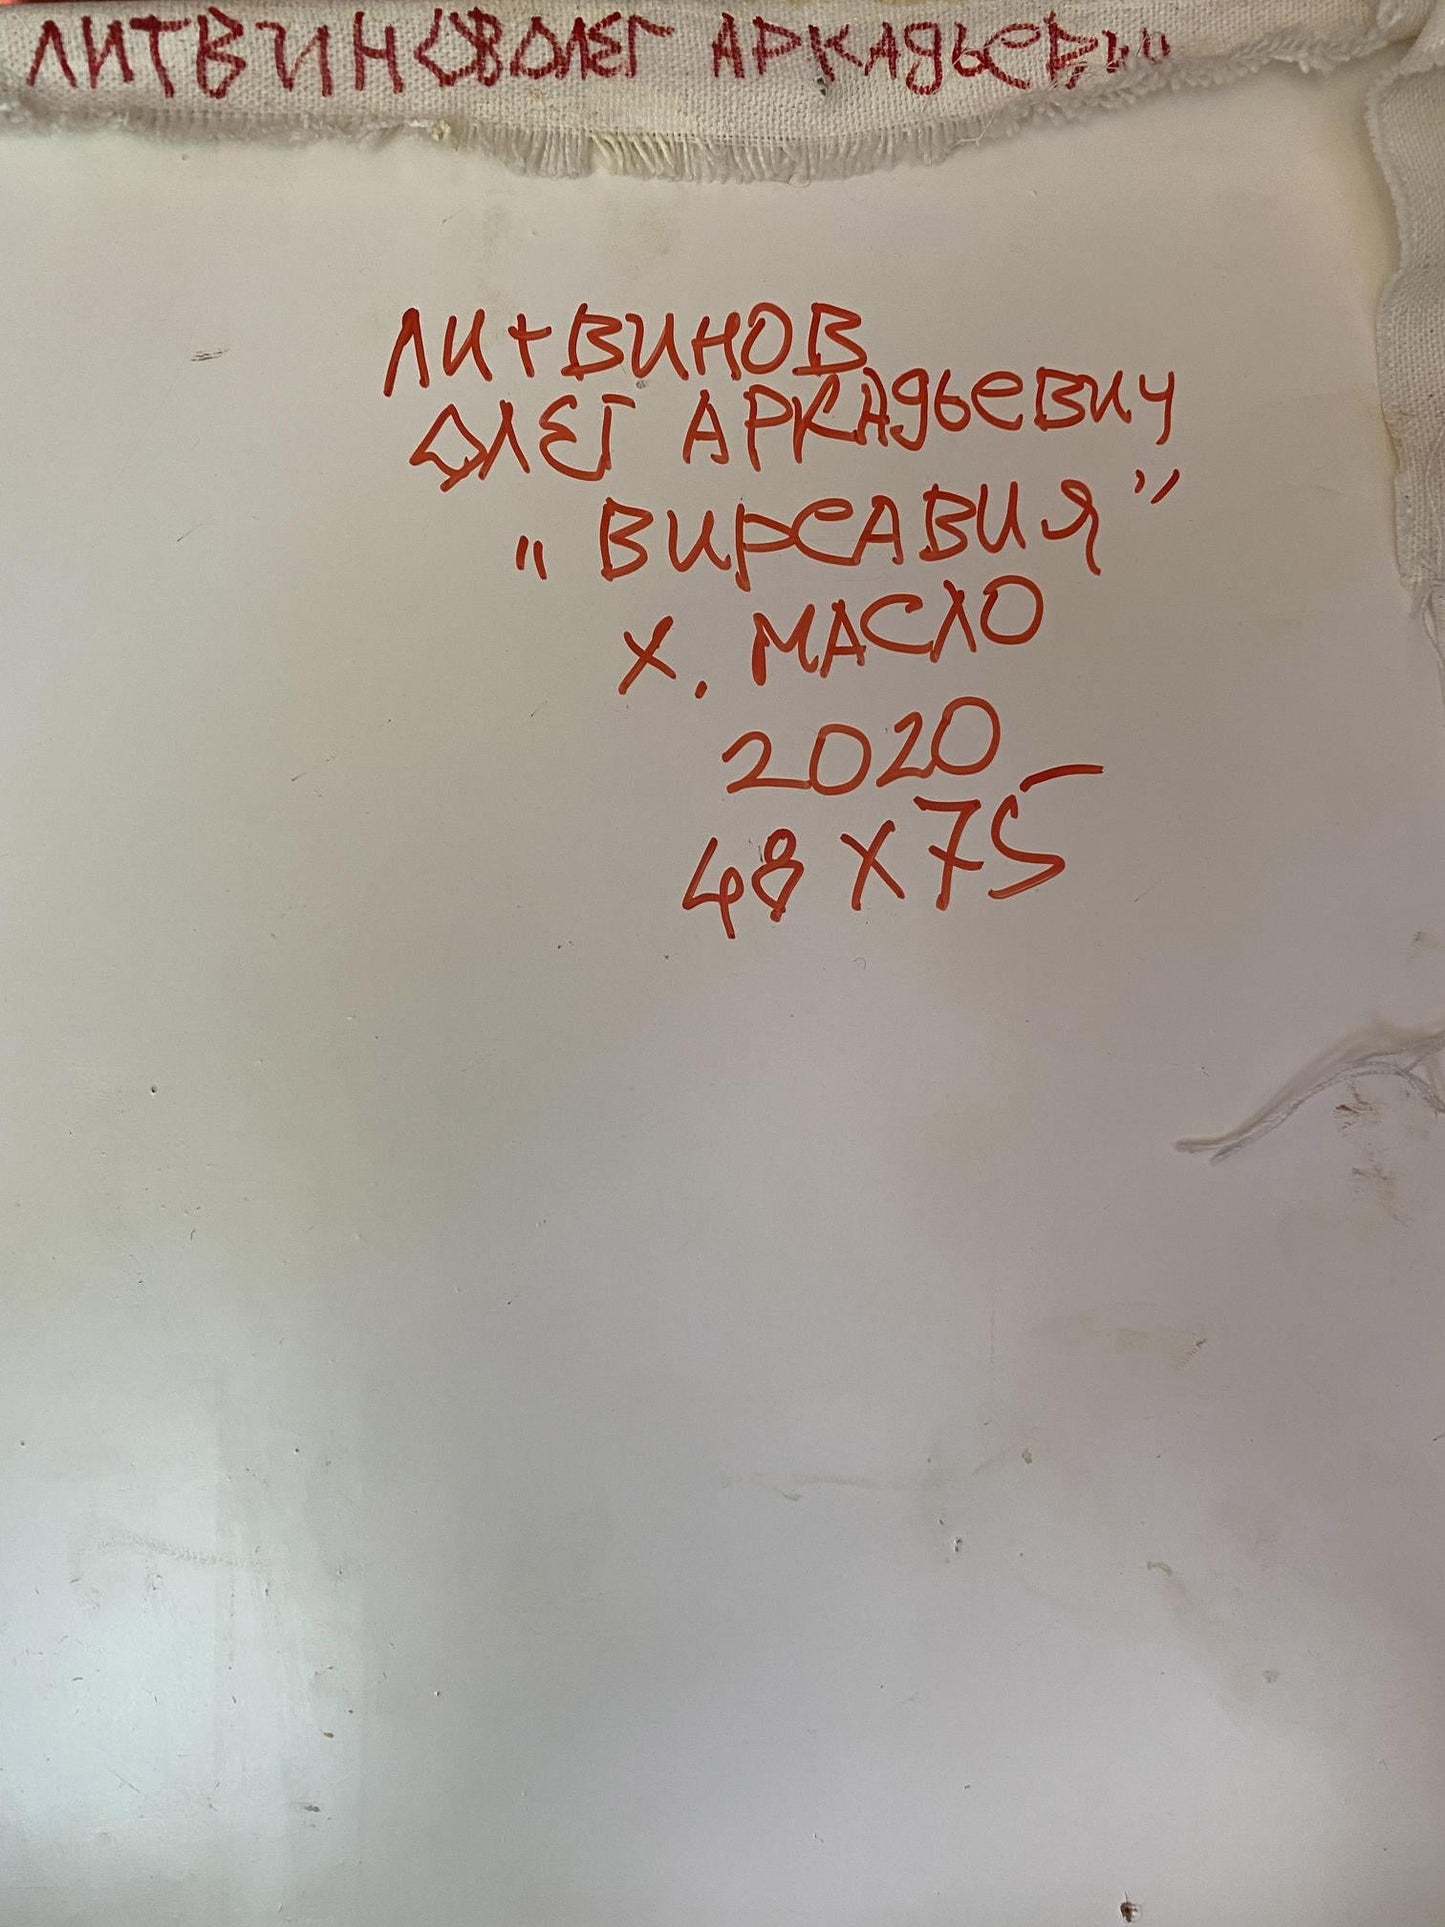 ЛИТВИНОВ ОЛЕГ АРКАДЬЕВИЧ
ЛИТВИНОВ
ОЛЕГ АРКАДЬЕВИЧ
„ ВИРСАВИЯ”
Х. МАСЛО
2020
48 X 75